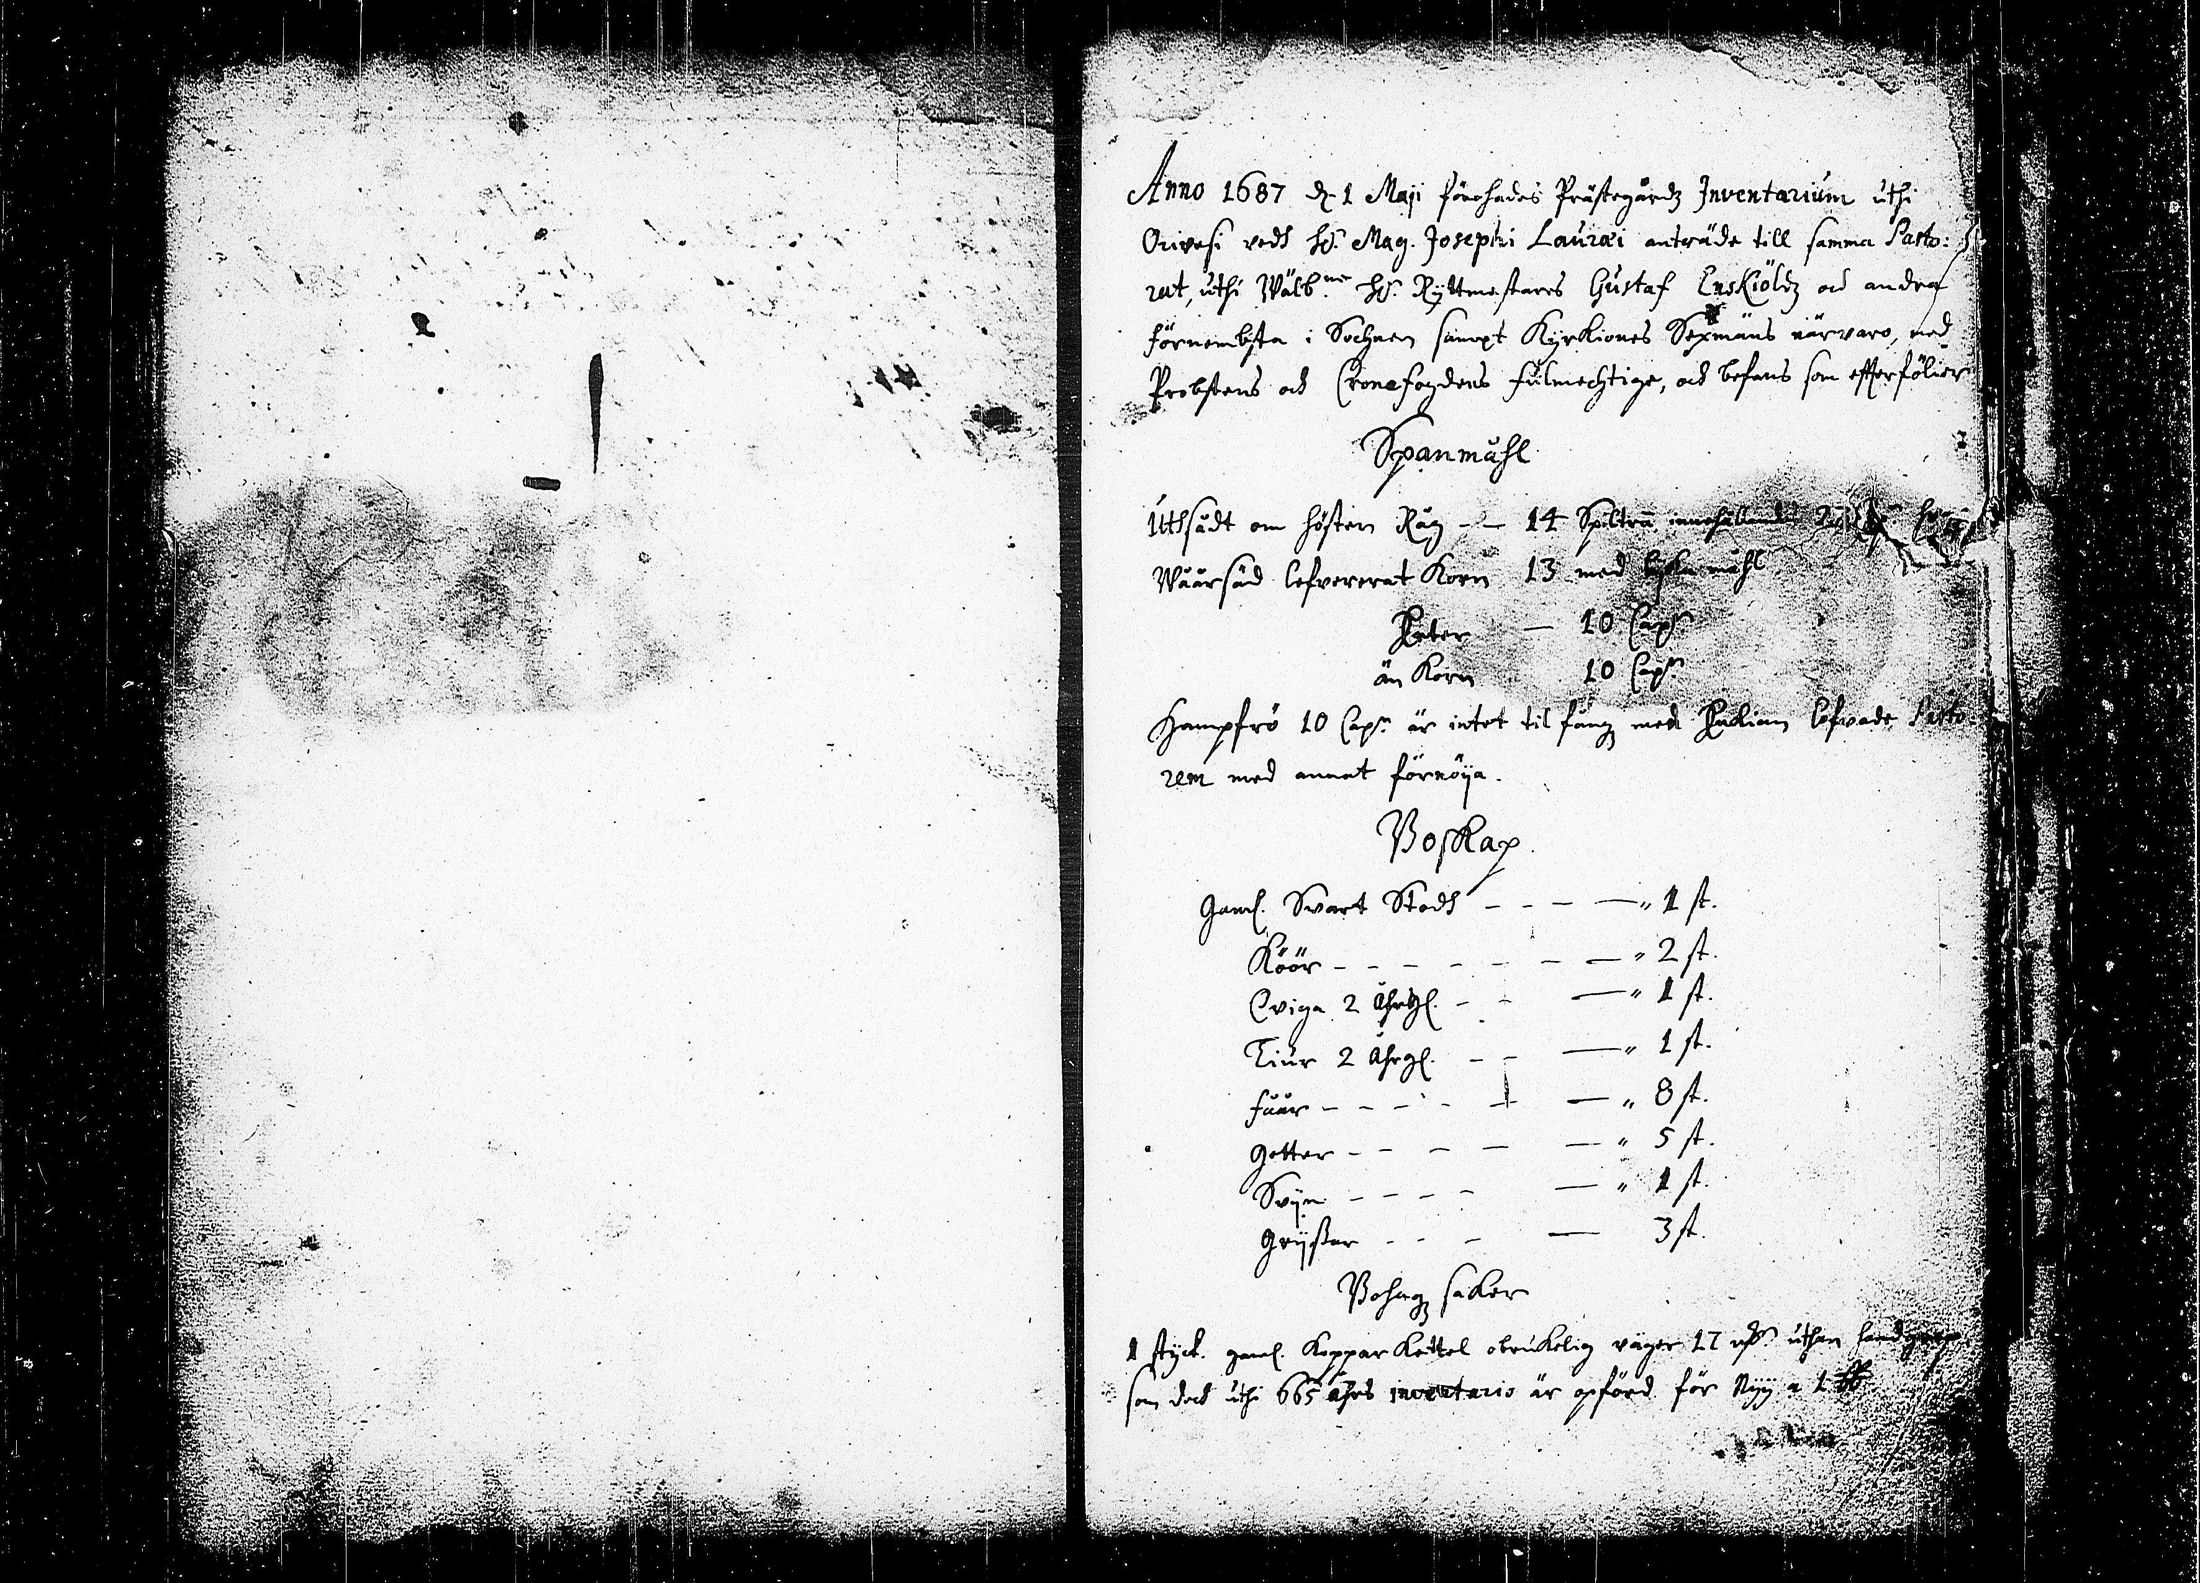 Anno 1687 d. 1 Maji förehades Prästegårdz Inventarium uthi
Orivesi vedh H:r Mag. Josephi Lauræi anträde till samma Pasto:
rat, uthi Wälb:ne H:r Ryttmestares Gustaf Enskiöldz och andra
förnembsta i Sochnen sampt Kyrkiones Sexmäns närvaro, med
Probstens och Cronefogdens fulmechtige, och befans som effterfölier
Spanmåhl
Uthsådt om hösten Råg - — 14 Spiltrå innehållandes
Wåårsäd lefvererat Korn 13 med måhl
— 10 Cap:r
än Korn 10 Cap:r
Hampfrö 10 Cap:r är intet til fång, men Enkian lofvade Pasto
rem med annat förnöija.
Boskap.
Gaml. Svart Stodh - - - — „ 1 st.
Köör - - - - - - — „ 2 st.
Qviga 2 åhrgl. - - — „ 1 st.
Tiur 2 åhrgl. - - — „ 1 st.
Fåår - - - - - — „ 8 st.
Getter - - - — — „ 5 st.
Svijn - - - - — „ 1 st.
Grijsar - - - — 3 st.
Bohagz saker
1 styck. gaml. Koppar Kettel obrukelig väger 17 uthan
som doch uthi 665 åhrs inventario är opförd för Nyy a 1